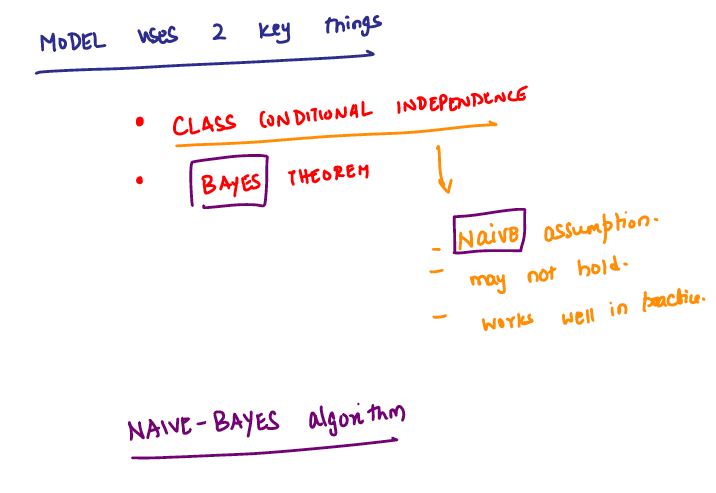 MODEL uses 2 key things
• CLASS CONDITIONAL INDEPENDENCE
• BAYES THEOREM
- Naive assumption.
- may not hold.
- works well in practice.
NAIVE-BAYES algorithm